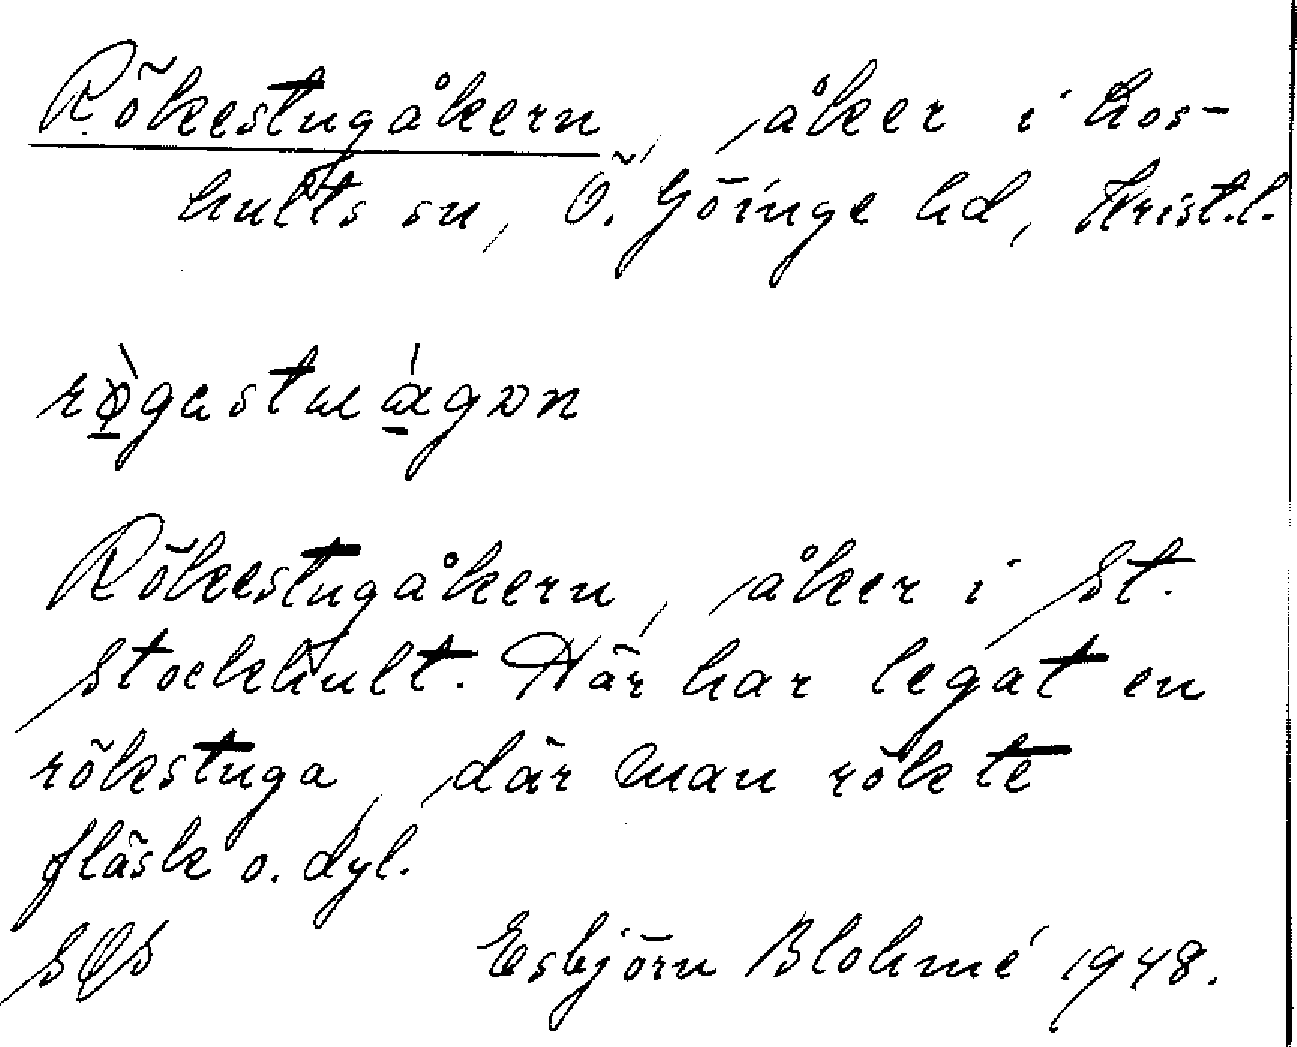 Rökestugåkern, åker i Los-
hults sn, Ö. Göinge hd, Krist.l.
Rökestugåkern, åker i St.
Stockhult. Här har legat en
rökstuga, där man rökte
fläsk o. dyl.
SOS Esbjörn Blohmé 1948.